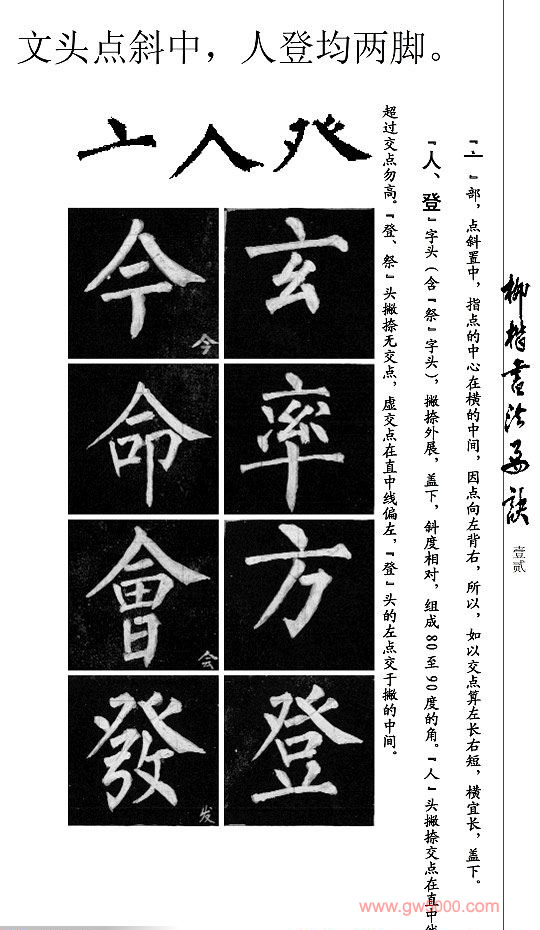 文头点斜中，人登均两脚。
柳楷書法要訣
壹贰
『亠』部，点斜置中，指点的中心在横的中间，因点向左背右，所以，如以交点算左长右短，横宜长，盖下。
『人、登』字头（含『祭』字头），撇捺外展，盖下，斜度相对，组成80至90度的角。『人』头撇捺交点在直中线
超过交点勿高。『登、祭』头撇捺无交点，虚交点在直中线偏左，『登』头的左点交于撇的中间。
亠人癶
玄
率
方
登
今 今
命
會 会
發 发
www.gw3000.com